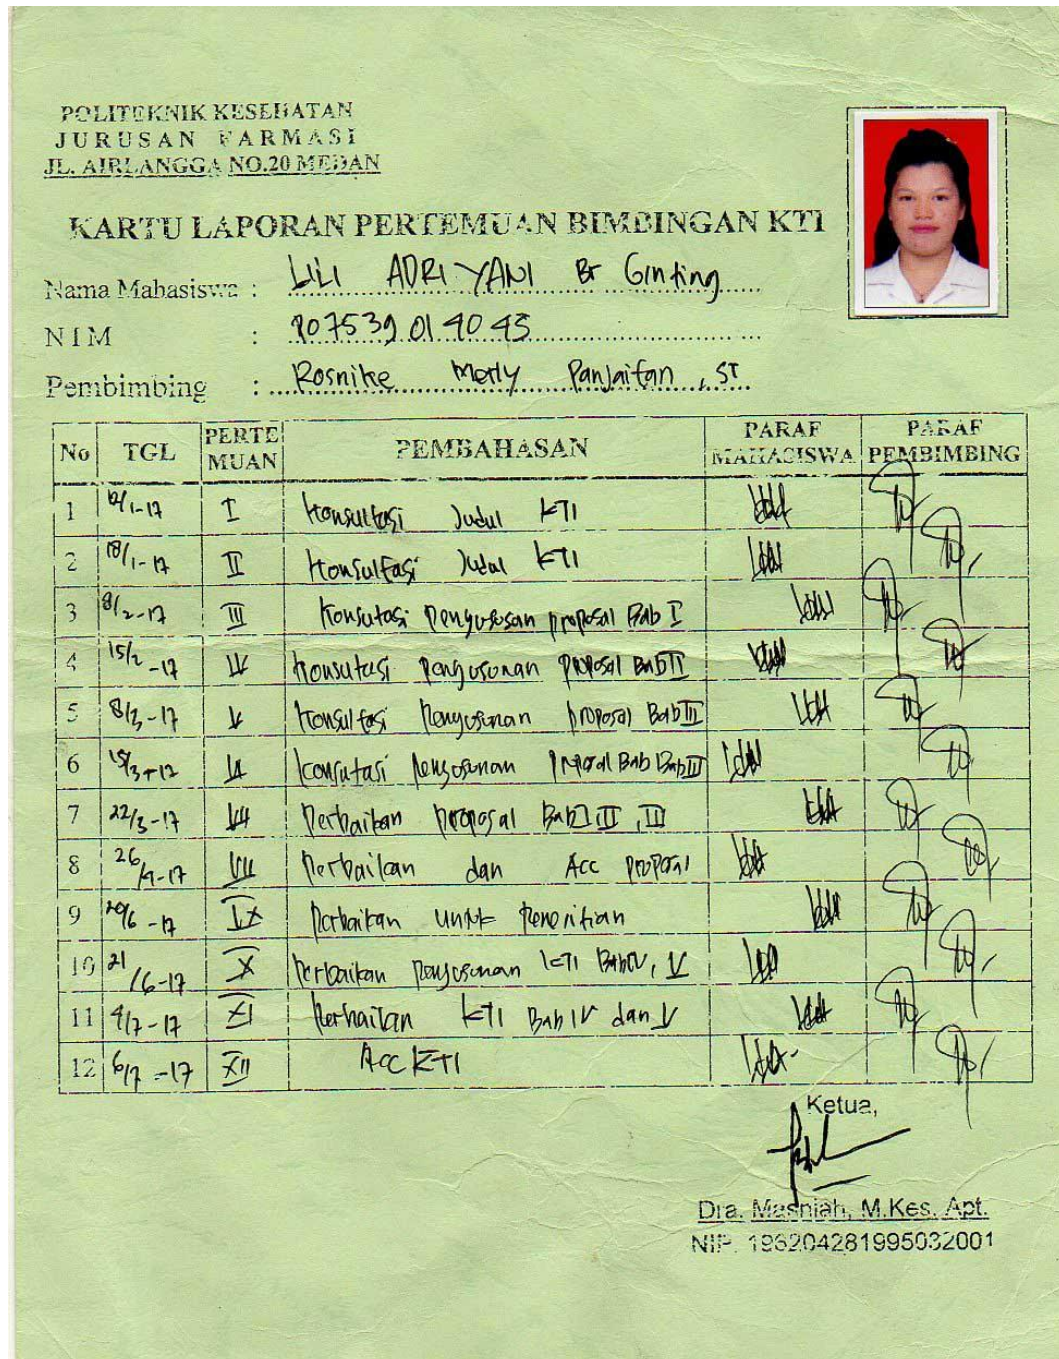 POLITEKNIK KESEHATAN
JURUSAN FARMASI
JL. AIRLANGGA NO.20 MEDAN
KARTU LAPORAN PERTEMUAN BIMBINGAN KTI
Nama Mahasiswa : Lili ADRIYANI Br Ginting
NIM : P07539014045
Pembimbing : Rosnike Merly Panjaitan, ST
No TGL PERTE MUAN PEMBAHASAN PARAF MAHASISWA PARAF PEMBIMBING
1 12/1-17 I Konsultasi Judul KTI
2 18/1-17 II Konsultasi Judul KTI
3 8/2-17 III Konsutasi Penyususan proposal Bab I
4 15/2-17 IV Konsutasi Penyusunan proposal Bab II
5 8/3-17 V Konsultasi Penyusunan proposal Bab III
6 15/3-17 VI Konsutasi Penyusunan Bab III
7 22/3-17 VII Perbaikan proposal Bab I, II, III
8 26/4-17 VIII Perbaikan dan Acc proposal
9 20/6-17 IX Perbaikan untuk Penelitian
10 21/6-17 X Perbaikan Penyusunan KTI Bab IV, V
11 4/7-17 XI Perbaikan KTI Bab IV dan V
12 6/7-17 XII Acc KTI
Ketua,
Dra. Masniah, M.Kes. Apt.
NIP. 196204281995032001